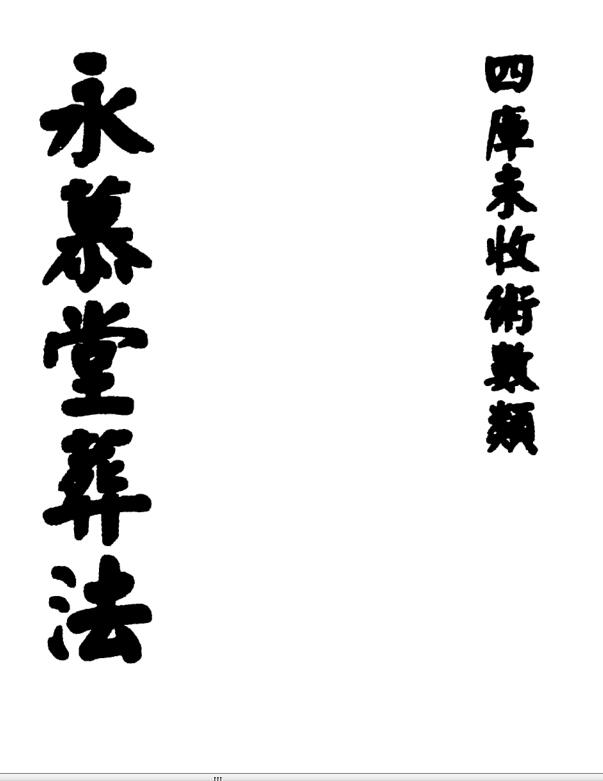 四庫未收術數類
永慕堂葬法